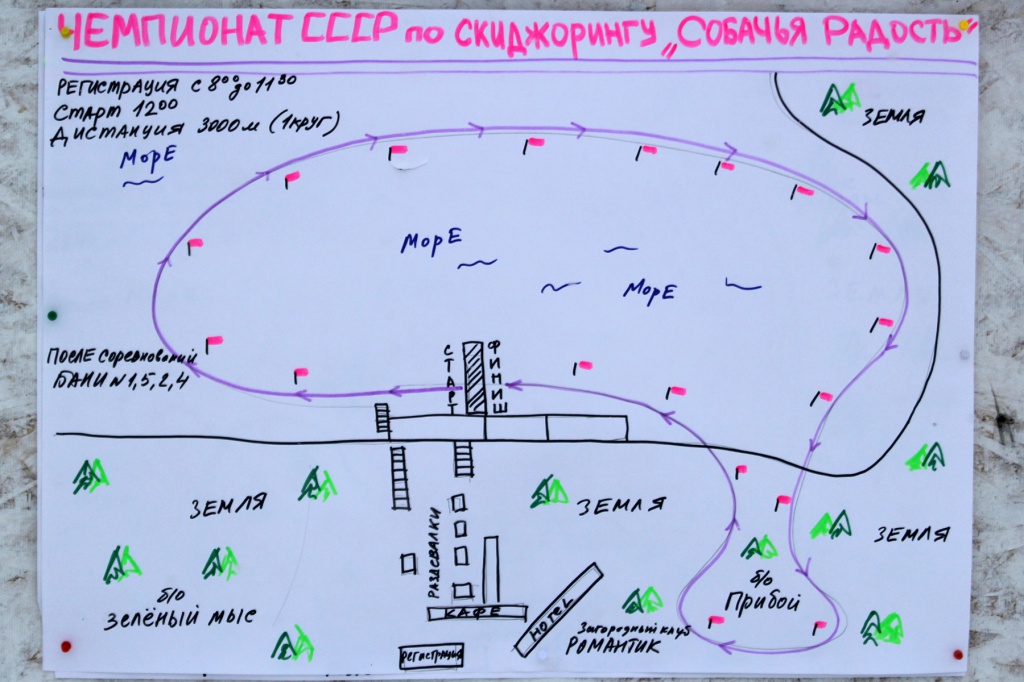 ЧЕМПИОНАТ СССР по СКИДЖОРИНГУ „СОБАЧЬЯ РАДОСТЬ"
РЕГИСТРАЦИЯ с 8⁰⁰ до 11³⁰
СТАРТ 12⁰⁰
ДИСТАНЦИЯ 3000 м (1 круг)
МорЕ
ЗЕМЛЯ
МорЕ
МорЕ
ПОСЛЕ соревнований
БАНИ N 1, 5, 2, 4
СТАРТ
ФИНИШ
ЗЕМЛЯ
ЗЕМЛЯ
ЗЕМЛЯ
РАЗДЕВАЛКИ
б/о
Зелёный мыс
б/о
Прибой
КАФЕ
HOTEL
Загородный клуб
РОМАНТИК
РЕГИСТРАЦИЯ